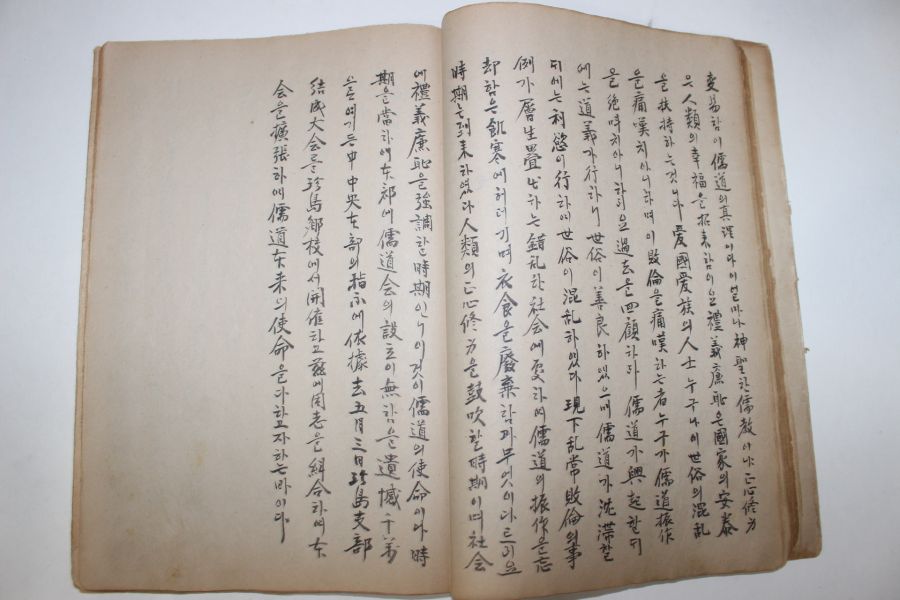 変易함이儒道의真理이라이얼마나神聖한儒教아냐正心修身
은人類의幸福을招来함이요禮義廉恥은國家의安泰
을扶持하는것니다愛國愛族의人士누구나이世俗의混乱
을痛嘆치아니하며이敗倫을痛嘆하는者누구가儒道振作
을絶叫치아니하리요過去을回顧하라儒道가興起할뒤
에는道義가行하니世俗이善良하였으매儒道가沈滞할
뒤에는利慾이行하매世俗이混乱하였다現下乱常敗倫의事
例가層生畳出하는錯乱한社会에処하여儒道의振作을忘
却함은飢寒에허더기며衣食을廃棄함과무엇이다르리요
時期는到来하였다人類의正心修身을鼓吹할時期이며社会
에禮義廉恥을強調할時期인니이것이儒道의使命이다時
期을當하여本郡에儒道会의設立이無함을遺憾千萬
으로여기든中中央本部의指示에依據去五月三日珍島支部
結成大会를珍島鄕校에서開催하고玆에同志을糾合하여本
会을擴張하여儒道本来의使命을다하고자하는바이다